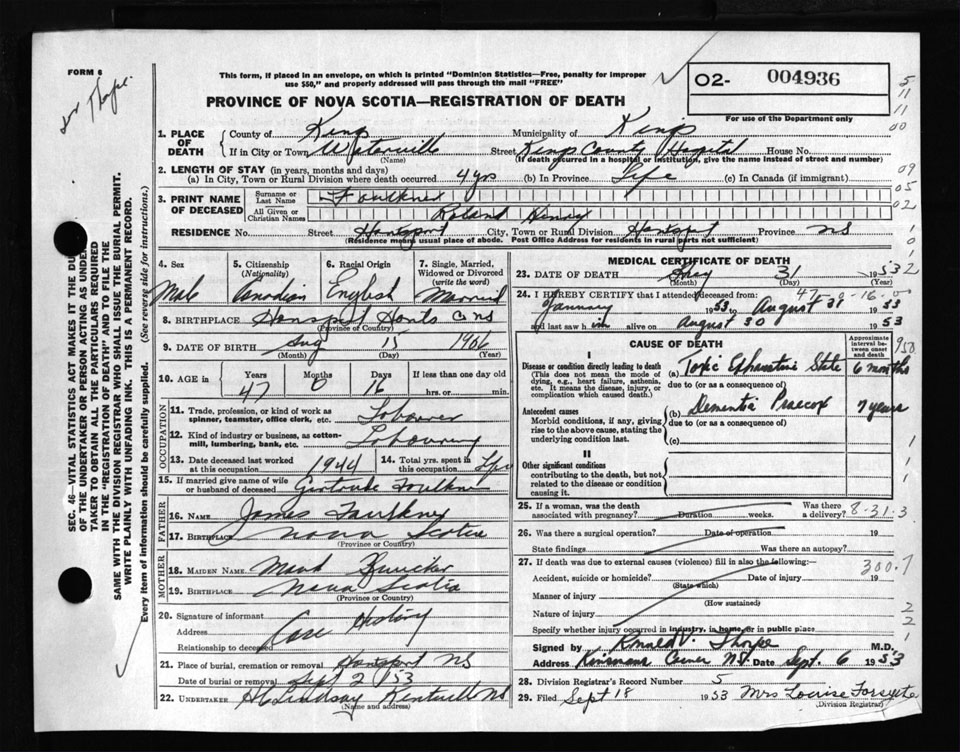 FORM 6
This form, if placed in an envelope, on which is printed "Dominion Statistics—Free, penalty for improper
use $50," and properly addressed will pass through the mail "FREE"
PROVINCE OF NOVA SCOTIA—REGISTRATION OF DEATH
O2- 004936
For use of the Department only
SEC. 46—VITAL STATISTICS ACT MAKES IT THE DU
OF THE UNDERTAKER OR PERSON ACTING AS UNDER
TAKER TO OBTAIN ALL THE PARTICULARS REQUIRED
IN THE "REGISTRATION OF DEATH" AND TO FILE THE
SAME WITH THE DIVISION REGISTRAR WHO SHALL ISSUE THE BURIAL PERMIT.
WRITE PLAINLY WITH UNFADING INK. THIS IS A PERMANENT RECORD.
Every item of information should be carefully supplied. (See reverse side for instructions.)
1. PLACE OF DEATH
County of Kings Municipality of Kings
If in City or Town Waterville Street Kings County Hospital House No.
(Name) (If death occurred in a hospital or institution, give the name instead of street and number)
2. LENGTH OF STAY (in years, months and days)
(a) In City, Town or Rural Division where death occurred 4 yrs (b) In Province Life (c) In Canada (if immigrant)
3. PRINT NAME OF DECEASED
Surname or Last Name Faulkner
All Given or Christian Names Roland Henry
RESIDENCE No. Street Hantsport City, Town or Rural Division Hantsport Province NS
(Residence means usual place of abode. Post Office Address for residents in rural parts not sufficient)
4. Sex Male
5. Citizenship (Nationality) Canadian
6. Racial Origin English
7. Single, Married, Widowed or Divorced (write the word) Married
8. BIRTHPLACE Hansport Hants Co NS
(Province or Country)
9. DATE OF BIRTH Aug 15 1906
(Month) (Day) (Year)
10. AGE in Years Months Days If less than one day old
47 0 16 hrs. or min.
OCCUPATION
11. Trade, profession, or kind of work as spinner, teamster, office clerk, etc. Labourer
12. Kind of industry or business, as cotton-mill, lumbering, bank, etc. Labouring
13. Date deceased last worked at this occupation 1944
14. Total yrs. spent in this occupation
15. If married give name of wife or husband of deceased Gertrude Faulkner
FATHER
16. NAME James Faulkner
17. BIRTHPLACE Nova Scotia
(Province or Country)
MOTHER
18. MAIDEN NAME
19. BIRTHPLACE Nova Scotia
(Province or Country)
20. Signature of informant Case History
Address
Relationship to deceased
21. Place of burial, cremation or removal Hantsport NS
Date of burial or removal Sept 2/53
22. UNDERTAKER Lindsay Kentville NS
(Name and address)
MEDICAL CERTIFICATE OF DEATH
23. DATE OF DEATH 31 19 53
(Month) (Day)
24. I HEREBY CERTIFY that I attended deceased from
January 1953 to August 31 1953
and last saw him alive on August 30 1953
CAUSE OF DEATH
Approximate interval between onset and death
I
Disease or condition directly leading to death (a) Toxic Exhaustive State 6 months
(This does not mean the mode of dying, e.g., heart failure, asthenia, etc. It means the disease, injury, or complication which caused death.)
due to (or as a consequence of)
Antecedent causes (b) Dementia Praecox 7 years
Morbid conditions, if any, giving rise to the above cause, stating the underlying condition last.
due to (or as a consequence of)
(c)
II
Other significant conditions
contributing to the death, but not related to the disease or condition causing it.
25. If a woman, was the death associated with pregnancy? Duration weeks. Was there a delivery?
8-31-3
26. Was there a surgical operation? Date of operation 19
State findings Was there an autopsy?
27. If death was due to external causes (violence) fill in also the following:—
300.7
Accident, suicide or homicide? Date of injury 19
(State which)
Manner of injury
(How sustained)
Nature of injury
Specify whether injury occurred in industry, in home, or in public place
Signed by Ronald V. Thorpe M.D.
Address NS. Date Sept. 6 1953
28. Division Registrar's Record Number 5
29. Filed Sept 18 1953 Mrs Louise Forsythe
(Division Registrar)